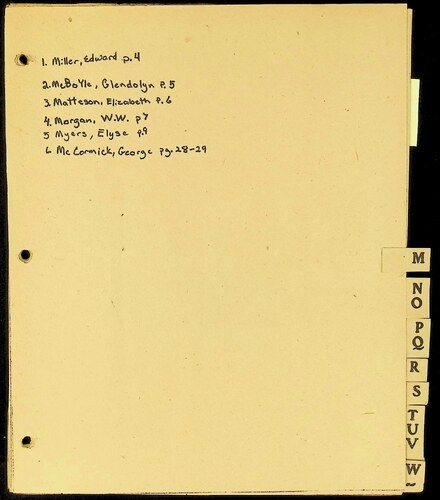 1. Miller, Edward p. 4
2. McBoyle, Glendolyn P. 5
3. Matteson, Elizabeth P. 6
4. Morgan, W.W. p 7
5 Myers, Elyse p. 9
6 McCormick, George pg. 28-29
M
NO
PQ
R
S
TUV
W